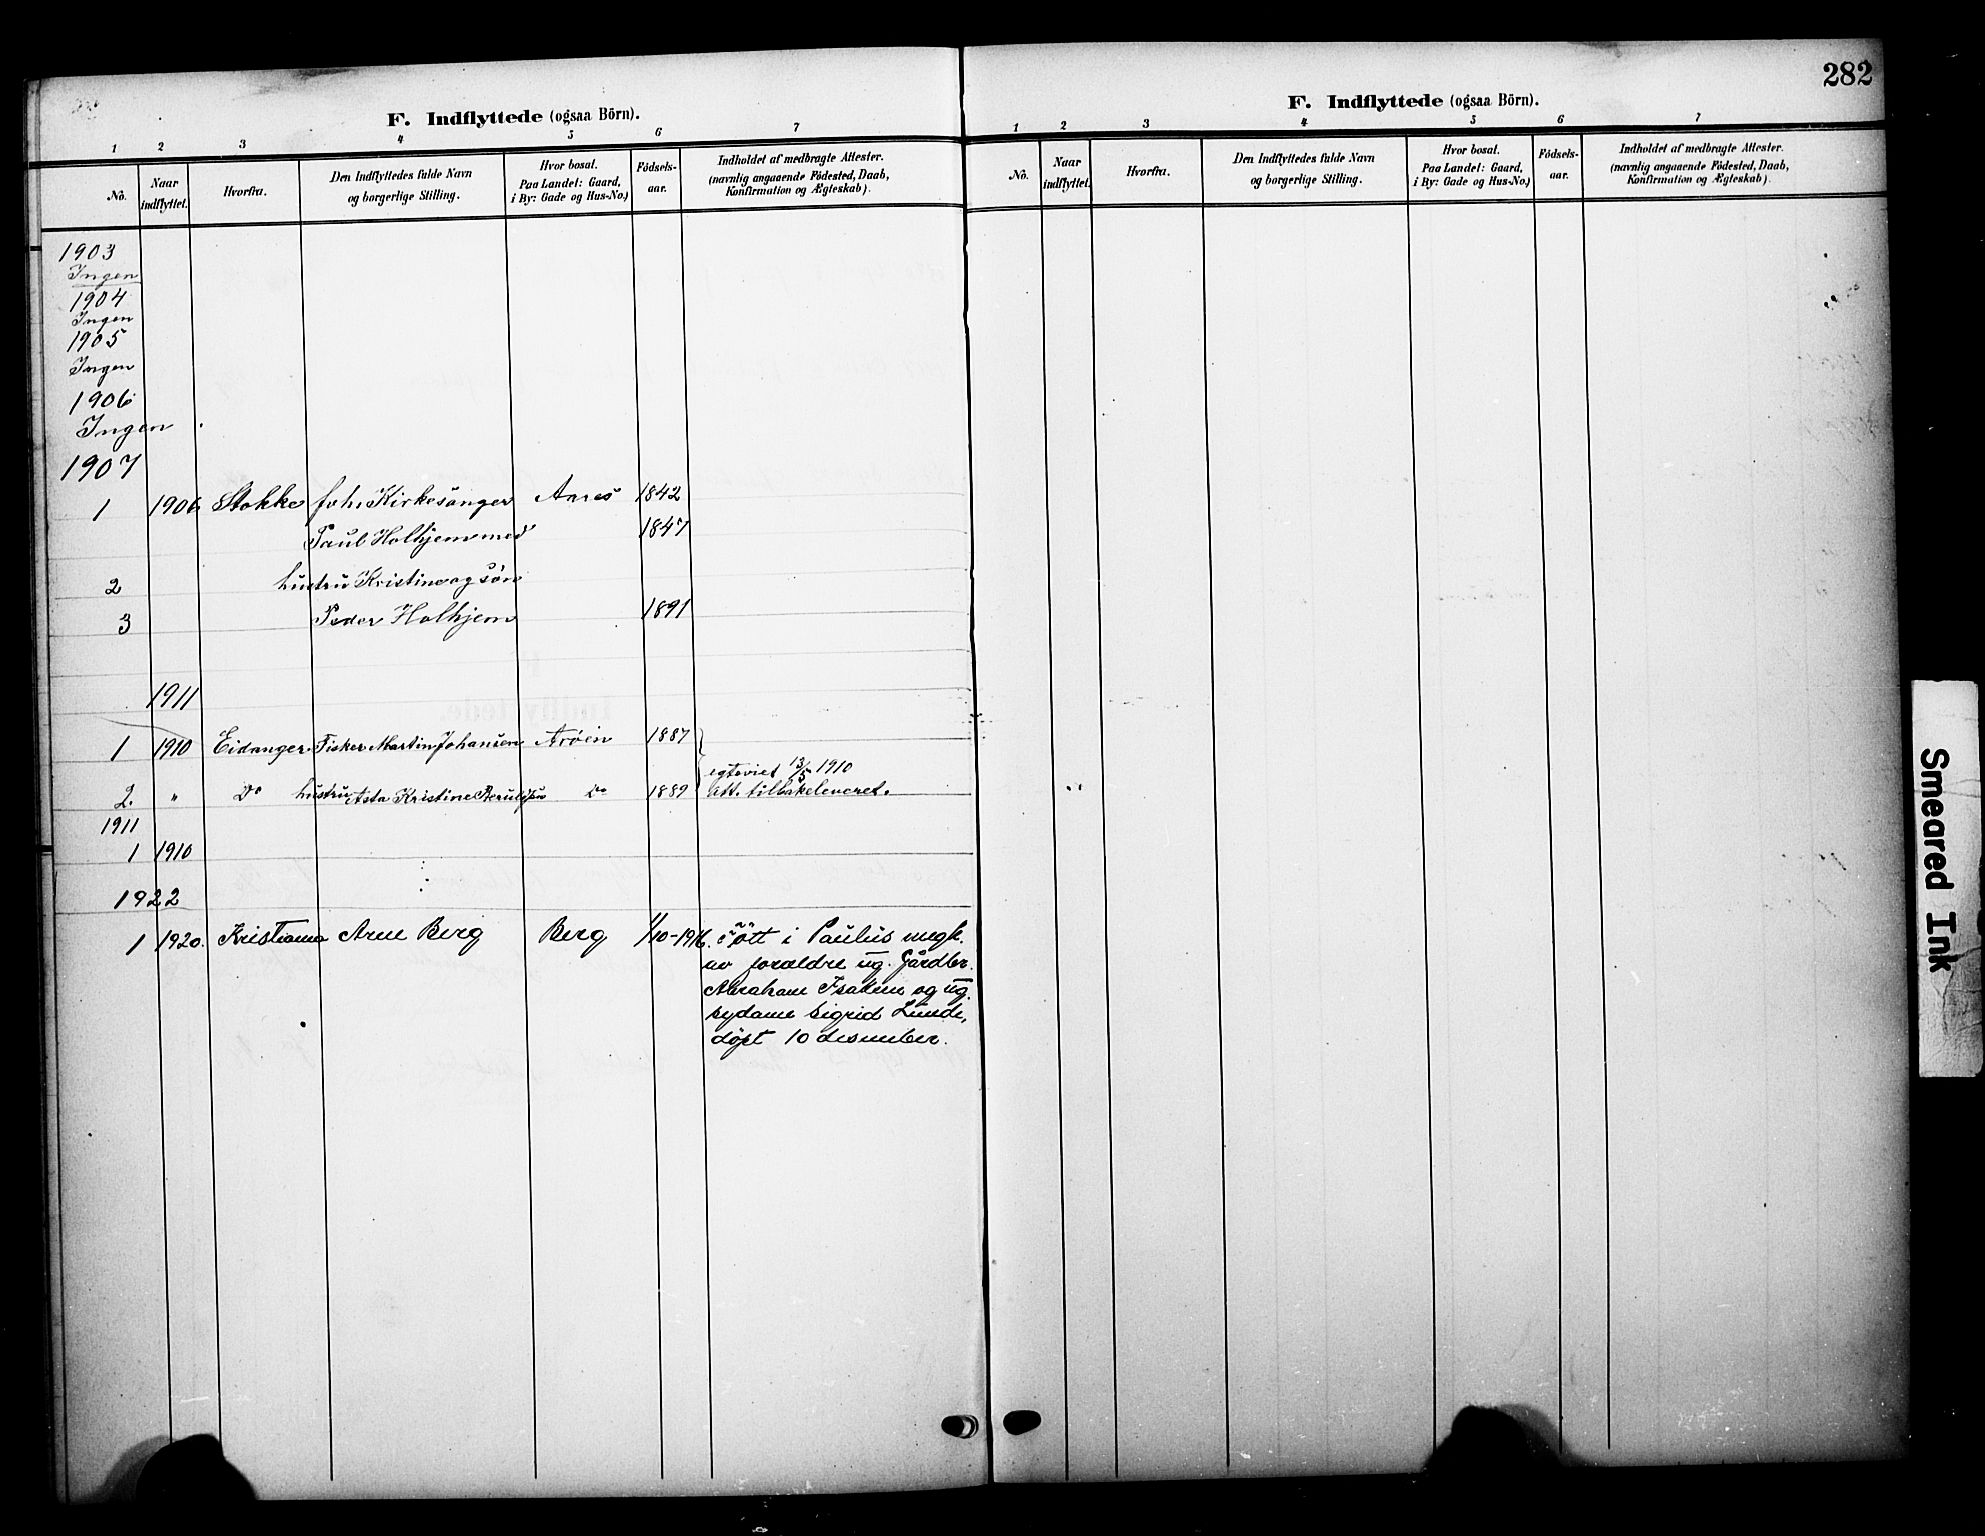 F. Indflyttede (ogsaa Börn).
1 2 3 4 5 6 7
No. Naar indflyttet. Hvorfra. Den Indflyttedes fulde Navn og borgerlige Stilling. Hvor bosat. Paa Landet: Gaard, i By: Gade og Hus-No.) Födsels-aar. Indholdet af medbragte Attester. (navnlig angaaende Födested, Daab, Konfirmation og Ægteskab).
1903
Ingen
1904
Ingen
1905
Ingen
1906
Ingen
1907
1 1906 Stokke Kirkesanger 1842
Paul Holhjem med 1847
2 hustru Kristine og sön
3 Peder Holhjem 1891
1911
1 1910 Eidanger Fisker Martin Johansen Aröen 1887
egteviet 13/5 1910
2. " Do hustru Asta Kristine Do 1889 Att. tilbakeleveret.
1911
1 1910
1922
1 1920. Kristiania Arne Berg Berg 1/10-1916. Født i Paulus megh.
av foreldre ug. Gårdbr.
Abraham Isaksen og ug.
sydame Sigrid Lunde,
døpt 10 desember.
282
F. Indflyttede (ogsaa Börn).
1 2 3 4 5 6 7
No. Naar indflyttet. Hvorfra. Den Indflyttedes fulde Navn og borgerlige Stilling. Hvor bosat. Paa Landet: Gaard, i By: Gade og Hus-No.) Födsels-aar. Indholdet af medbragte Attester. (navnlig angaaende Födested, Daab, Konfirmation og Ægteskab).
Smeared Ink